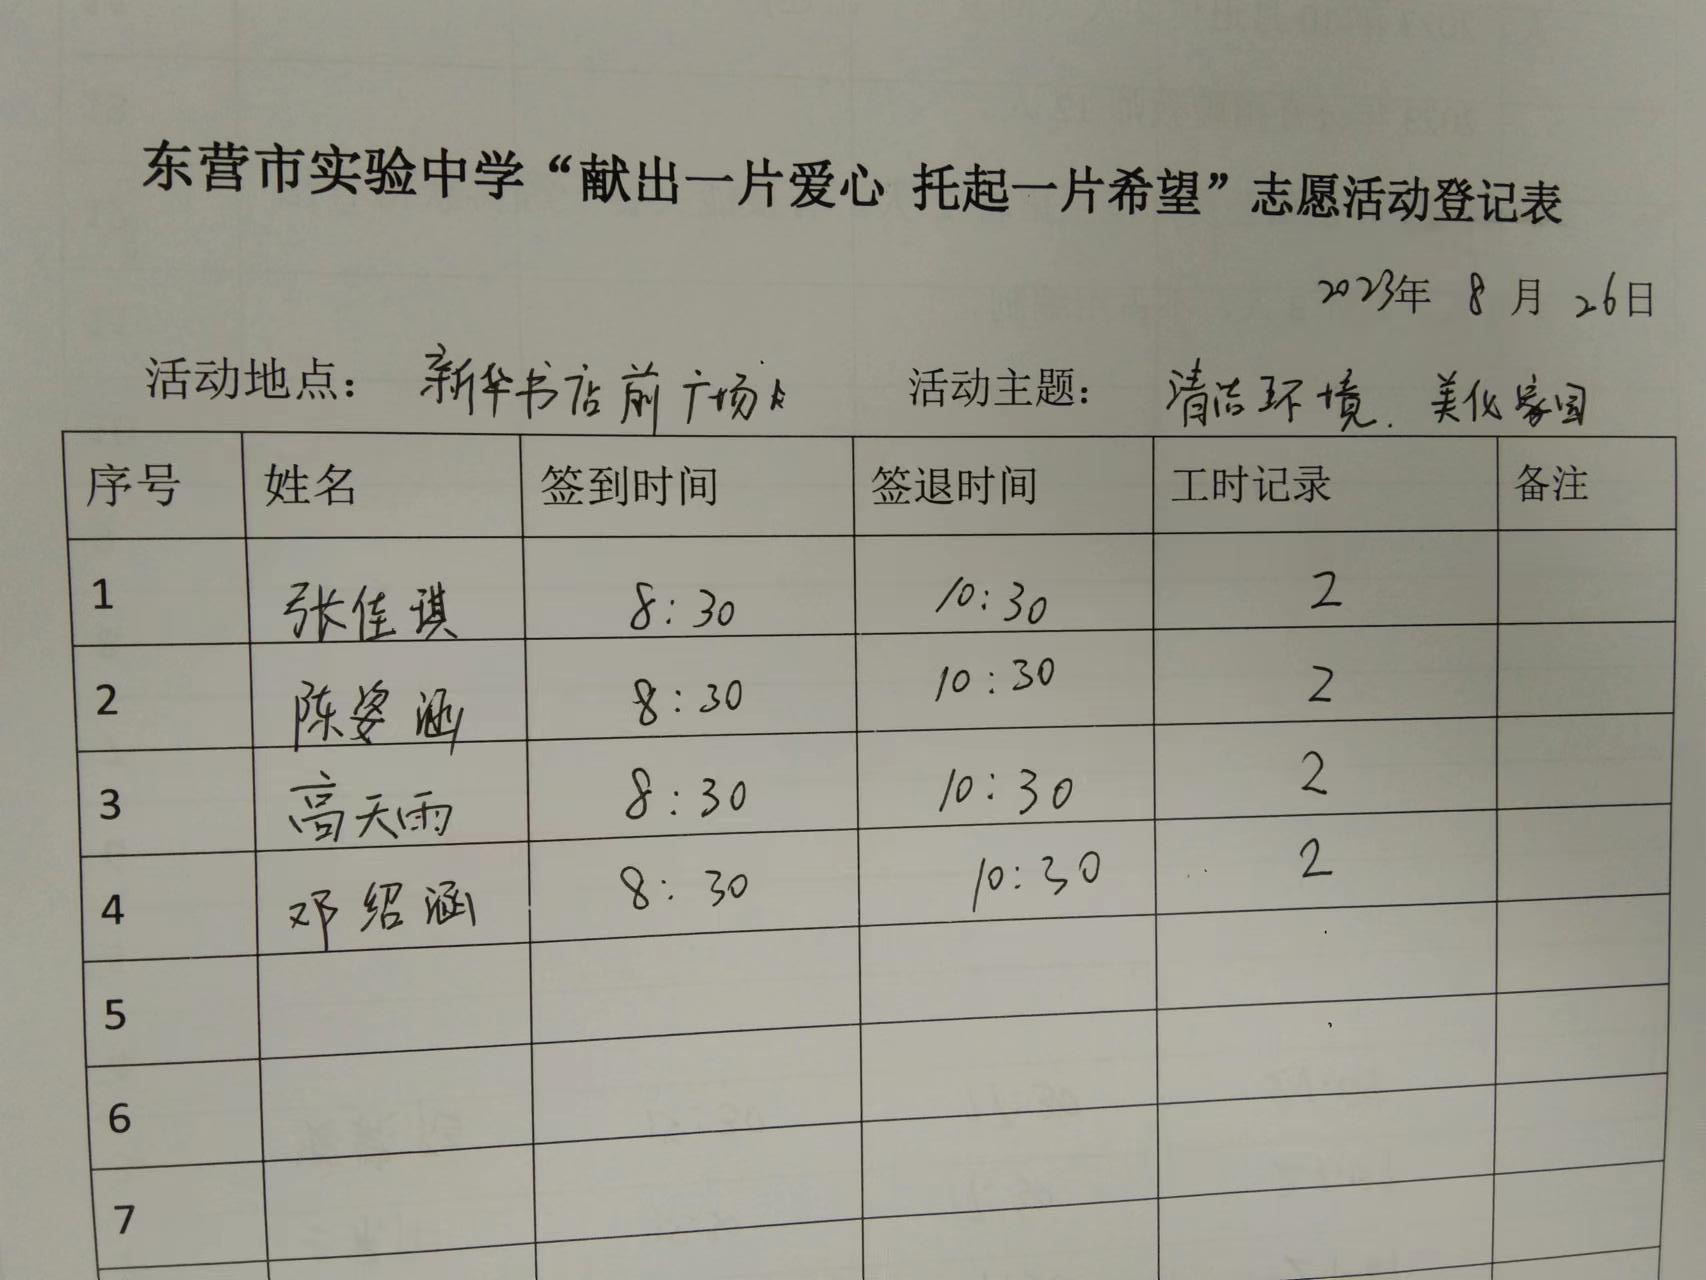 东营市实验中学“献出一片爱心 托起一片希望”志愿活动登记表
2023年 8 月 26日
活动地点： 新华书店前广场 活动主题： 清洁环境、美化家园
序号 姓名 签到时间 签退时间 工时记录 备注
1 张佳琪 8:30 10:30 2
2 陈姿涵 8:30 10:30 2
3 高天雨 8:30 10:30 2
4 邓绍涵 8:30 10:30 2
5
6
7